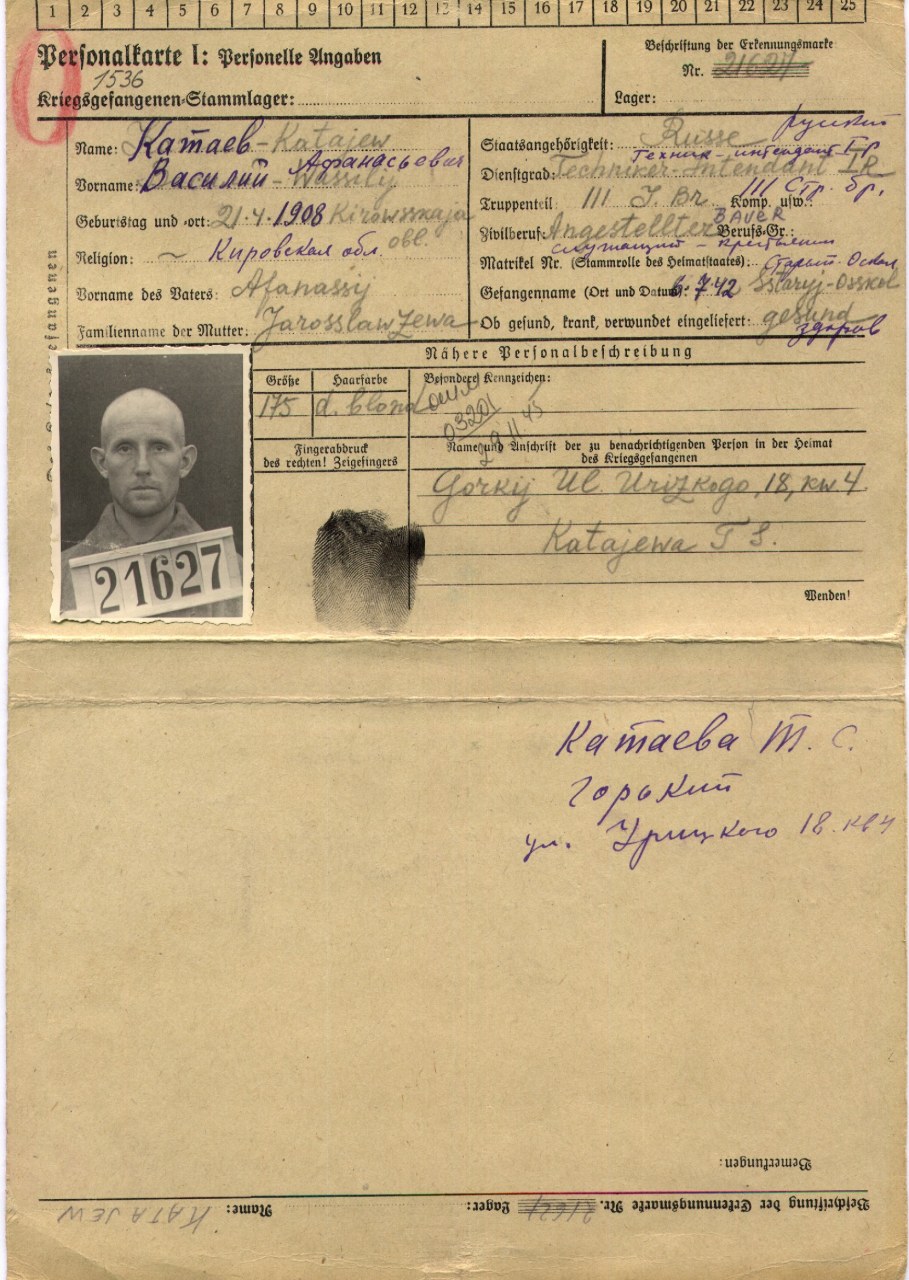 1 2 3 4 5 6 7 8 9 10 11 12 13 14 15 16 17 18 19 20 21 22 23 24 25
Personalkarte I: Personelle Angaben
1536
Kriegsgefangenen-Stammlager:
Beschriftung der Erkennungsmarke
Nr. 21627
Lager:
Name: Катаев - Katajew
Афанасьевич
Vorname: Василий - Wassilij
Geburtstag und -ort: 21.4.1908 Kirowsskaja obl.
Religion: ~ Кировская обл.
Vorname des Vaters: Afanassij
Familienname der Mutter: Jarosslawzewa
русский
Staatsangehörigkeit: Russe
Техник-интендант I р
Dienstgrad: Techniker-Intendant I R
Truppenteil: III J. Br Komp. usw.: III Стр. бр.
BAUER
Zivilberuf: Angestellter Berufs-Gr.:
служащий - крестьянин
Matrikel Nr. (Stammrolle des Heimatstaates): Старый-Оскол
Gefangenname (Ort und Datum): 6.7.42 Sstaryj-Osskol
Ob gesund, krank, verwundet eingeliefert: gesund
здоров
Nähere Personalbeschreibung
Größe Haarfarbe Besondere Kennzeichen:
175 d. blond
03201
29 11 45
Fingerabdruck
des rechten! Zeigefingers
Name und Anschrift der zu benachrichtigenden Person in der Heimat
des Kriegsgefangenen
Gorkij Ul Urizkogo, 18, kw 4
Katajewa T S.
21627
Wenden!
Катаева Т. С.
Горький
ул. Урицкого 18 кв 4
Bemerkungen:
Beschriftung der Erkennungsmarke Nr. 21627 Lager: Name: KATAJEW